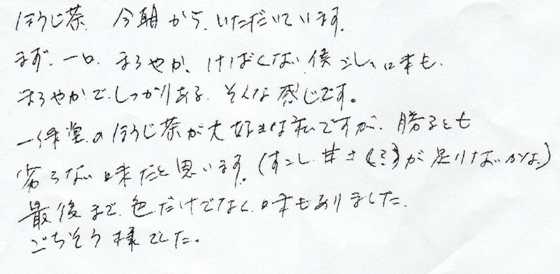 ほうじ茶 今朝から、いただいています。
まず、一口、まろやか、けばくない 後ごし、口未も
まろやかで、しっかりある、そんな感じです。
一保堂のほうじ茶が大好きな私ですが、勝るとも
劣らない味だと思います。(すこし、甘さ(?)が足りないかな)
最後まで、色だけでなく、味もありました。
ごちそう様でした。